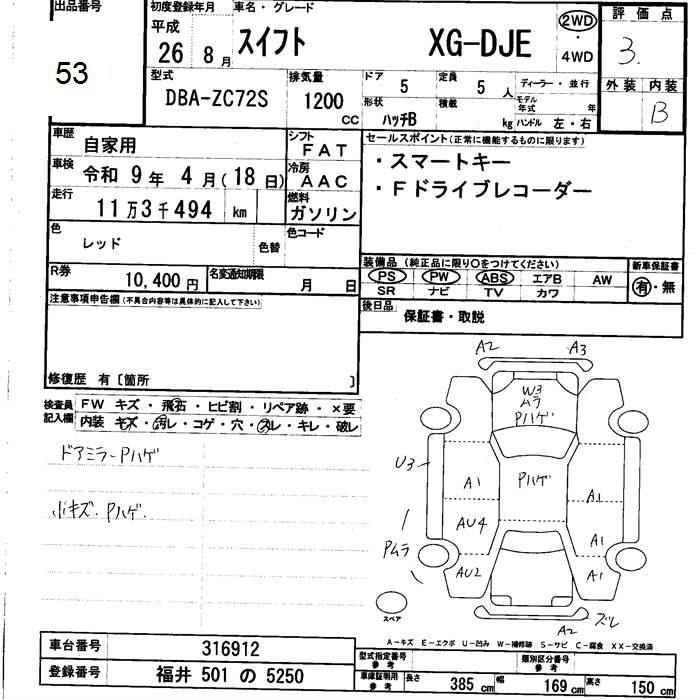 出品番号
53
初度登録年月
平成 26 8 月
車名・グレード
スイフト XG-DJE
2WD
・
4WD
評価点
3.
外装 内装
B
型式
DBA-ZC72S
排気量
1200 CC
ドア 5 定員 5 人
形状 ハッチB 積載 kg
ディーラー・並行
モデル年式 年
ハンドル 左・右
車歴 自家用
シフト FAT
車検 令和 9 年 4 月 (18 日)
冷房 AAC
走行 11 万 3 千 494 km
燃料 ガソリン
色 レッド 色替
色コード
R券 10,400 円 名変通知期限 月 日
セールスポイント(正常に機能するものに限ります)
・スマートキー
・Fドライブレコーダー
装備品 (純正品に限り○をつけてください)
PS PW ABS エアB AW
SR ナビ TV カワ
新車保証書
有・無
後日品 保証書・取説
注意事項申告欄(不具合内容等は具体的に記入して下さい)
修復歴 有〔箇所 〕
検査員記入欄
FW キズ・飛石・ヒビ割・リペア跡・×要
内装 キズ・汚レ・コゲ・穴・スレ・キレ・破レ
ドアミラーPハゲ
小キズ.Pハゲ.
A2 A3
W3
ムラ
Pハゲ
U3
A1
Pハゲ
A1
AU4
A1
Pムラ
AU2
A1
スペア
A2
ズレ
A-キズ E-エクボ U-凹み W-補修跡 S-サビ C-腐食 XX-交換済
車台番号 316912
登録番号 福井 501 の 5250
型式指定番号 参考
類別区分番号 参考
車庫証明用 参考 長さ 385 cm 幅 169 cm 高さ 150 cm